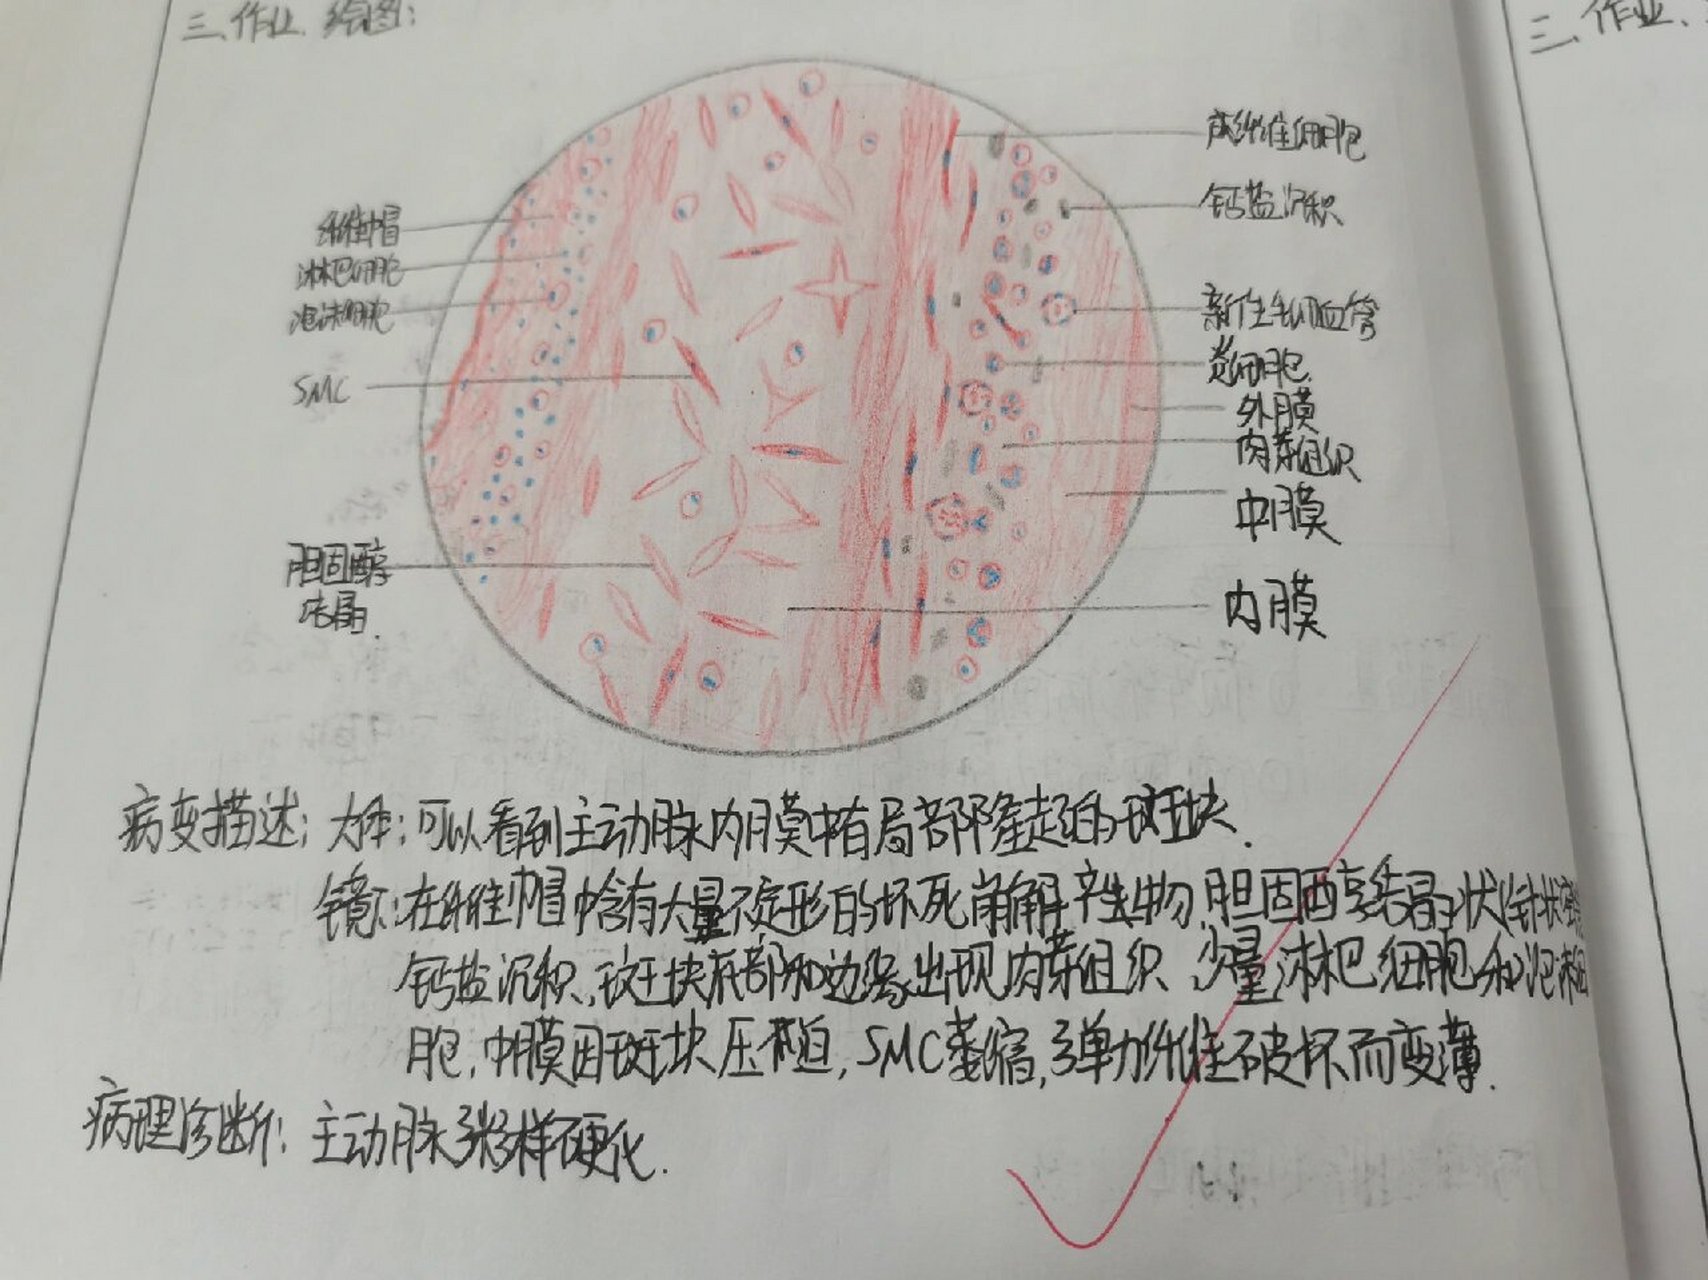 三、作业、绘图:
三、作业、
纤维帽
淋巴细胞
泡沫细胞
SMC
胆固醇
结晶.
成纤维细胞
钙盐沉积
新生毛细血管
炎细胞
外膜
肉芽组织
中膜
内膜
病变描述: 大体: 可以看到主动脉内膜中有局部隆起的斑块.
镜下: 在纤维帽中含有大量不定形的坏死崩解产生物、胆固醇结晶状(针状
钙盐沉积, 斑块底部和边缘出现肉芽组织、少量淋巴细胞和泡沫细
胞, 中膜因斑块压迫, SMC萎缩, 弹力纤维破坏而变薄.
病理诊断: 主动脉粥样硬化.